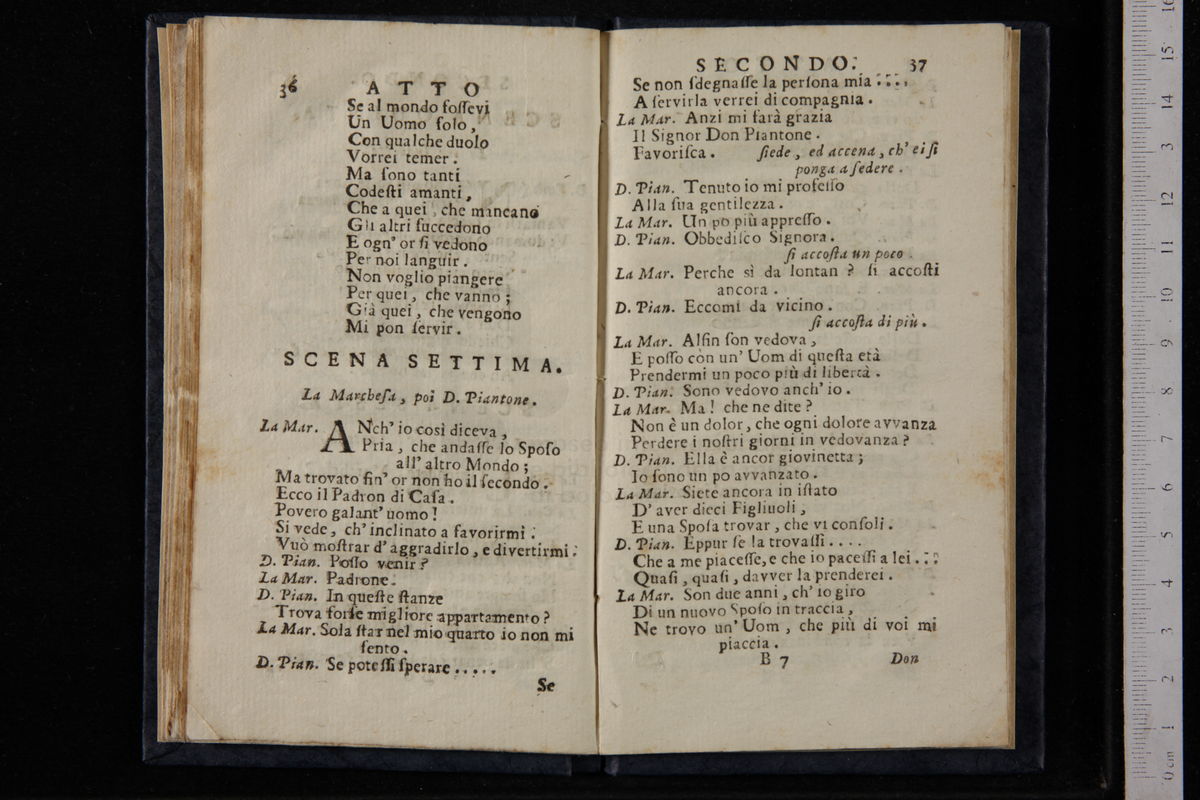 36 ATTO
Se al mondo foſſevi
Un Uomo ſolo,
Con qualche duolo
Vorrei temer.
Ma ſono tanti
Codeſti amanti,
Che a quei, che mancano
Gli altri ſuccedono
E ogn' or ſi vedono
Per noi languir.
Non voglio piangere
Per quei, che vanno;
Già quei, che vengono
Mi pon ſervir.
SCENA SETTIMA.
La Marcheſa, poi D. Piantone.
La Mar. ANch' io così diceva,
Pria, che andaſſe lo Spoſo
all' altro Mondo;
Ma trovato fin' or non ho il ſecondo.
Ecco il Padron di Caſa.
Povero galant' uomo!
Si vede, ch' inclinato a favorirmi.
Vuò moſtrar d' aggradirlo, e divertirmi.
D. Pian. Poſſo venir?
La Mar. Padrone.
D. Pian. In queſte ſtanze
Trova forſe migliore appartamento?
La Mar. Sola ſtar nel mio quarto io non mi
ſento.
D. Pian. Se poteſſi ſperare.....
Se
SECONDO. 37
Se non ſdegnaſſe la perſona mia....
A ſervirla verrei di compagnia.
La Mar. Anzi mi farà grazia
Il Signor Don Piantone.
Favoriſca. ſiede, ed accena, ch' ei ſi
ponga a ſedere.
D. Pian. Tenuto io mi profeſſo
Alla ſua gentilezza.
La Mar. Un po più appreſſo.
D. Pian. Obbediſco Signora.
ſi accoſta un poco.
La Mar. Perche sì da lontan? ſi accoſti
ancora.
D. Pian. Eccomi da vicino.
ſi accoſta di più.
La Mar. Alfin ſon vedova,
E poſſo con un' Uom di queſta età
Prendermi un poco più di libertà.
D. Pian. Sono vedovo anch' io.
La Mar. Ma! che ne dite?
Non è un dolor, che ogni dolore avvanza
Perdere i noſtri giorni in vedovanza?
D. Pian. Ella è ancor giovinetta;
Io ſono un po avvanzato.
La Mar. Siete ancora in iſtato
D' aver dieci Figliuoli,
E una Spoſa trovar, che vi conſoli.
D. Pian. Eppur ſe la trovaſſi....
Che a me piaceſſe, e che io paceſſi a lei....
Quaſi, quaſi, davver la prenderei.
La Mar. Son due anni, ch' io giro
Di un nuovo Spoſo in traccia,
Ne trovo un' Uom, che più di voi mi
piaccia.
B 7 Don
0 cm 1 2 3 4 5 6 7 8 9 10 11 12 13 14 15 16